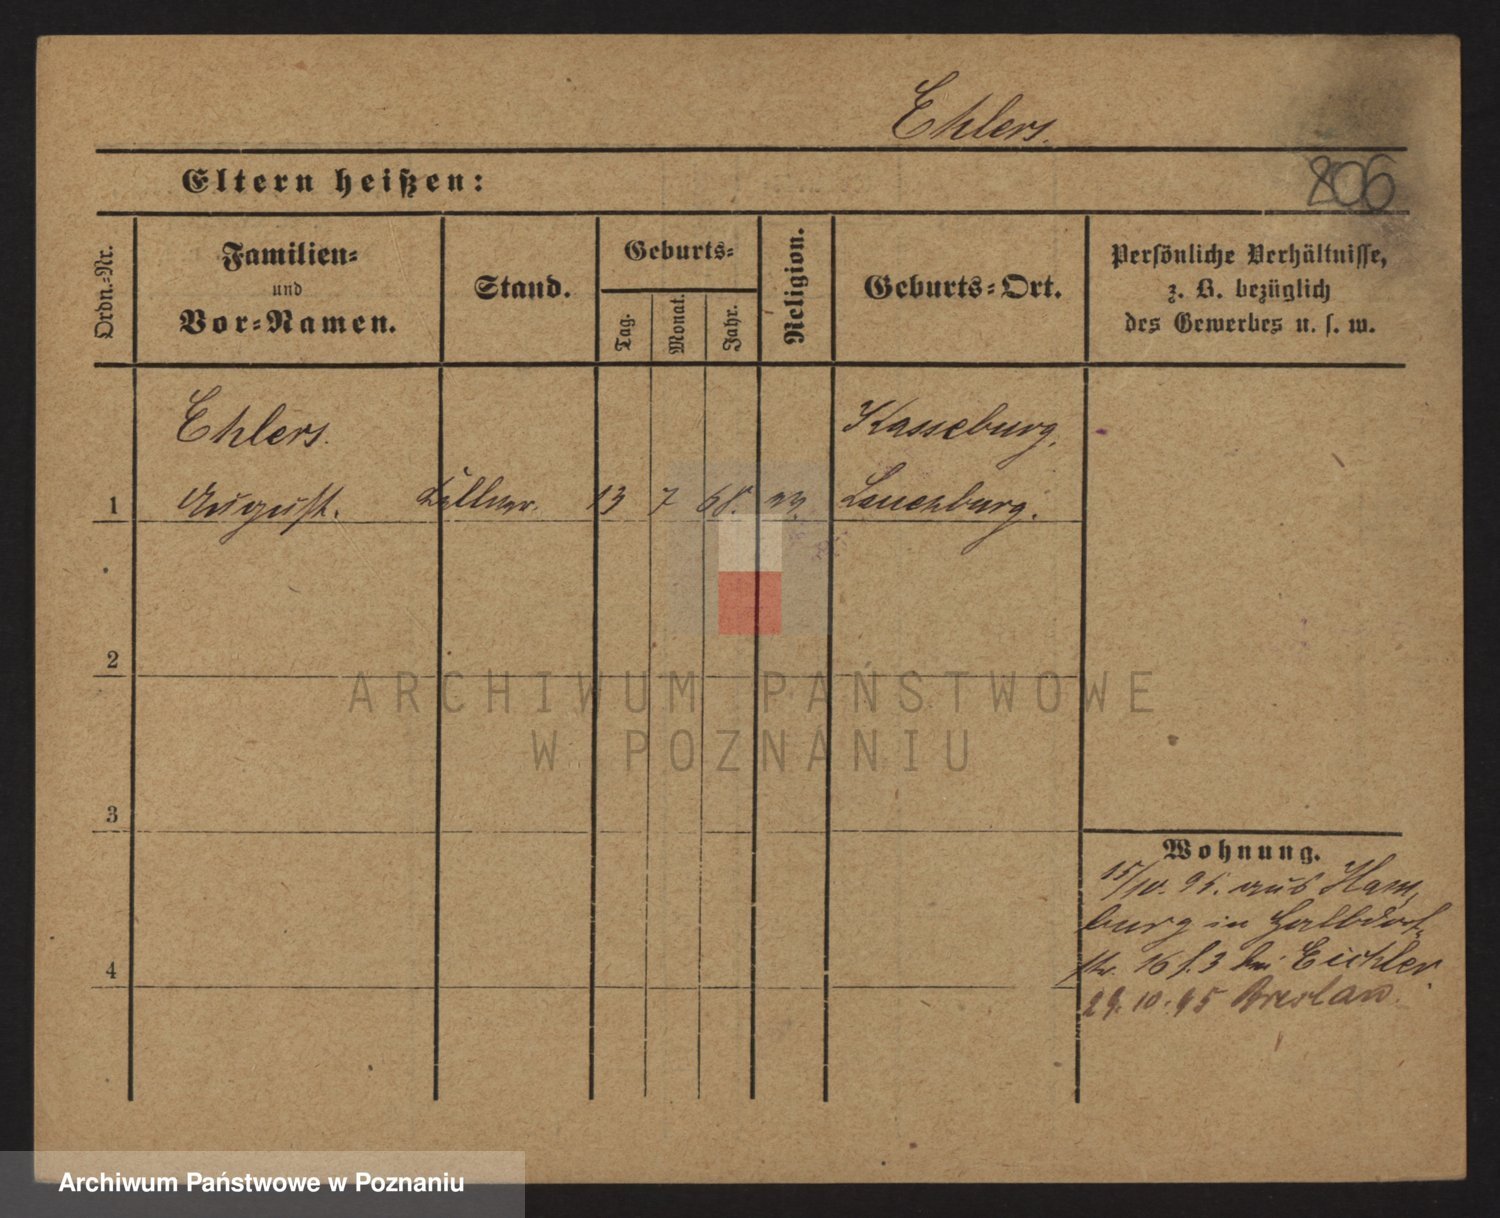 Ehlers.
806
Eltern heißen:
Ordn.-Nr.
Familien-
und
Vor-Namen.
Stand.
Geburts-
Tag.
Monat.
Jahr.
Religion.
Geburts-Ort.
Persönliche Verhältnisse,
z. B. bezüglich
des Gewerbes u. s. w.
Ehlers.
Kasseburg,
1 August. Kellner. 13 7 68. Lauenburg.
2
3
4
Wohnung.
15/10. 95. aus Ham-
burg in Halbdorf-
str. 16 b. 3 bei Eichler
29.10.95 Breslau.
ARCHIWUM PAŃSTWOWE
W POZNANIU
Archiwum Państwowe w Poznaniu